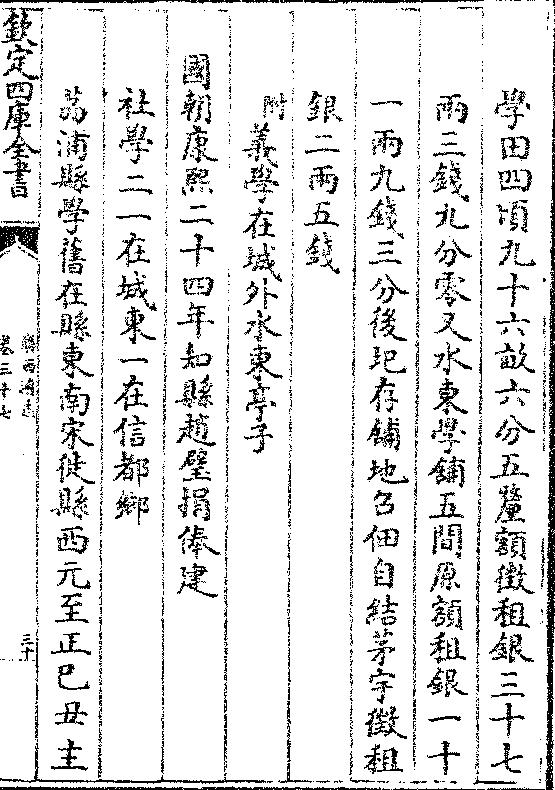 學田四頃九十六畝六分五釐額徵租銀三十七
兩三錢九分零又水東學舖五間原額租銀一十
一兩九錢三分後圯存舖地召佃自結茅宇徵租
銀二兩五錢
附義學在城外水東亭子
國朝康熙二十四年知縣趙璧捐俸建
社學二一在城東一在信都鄉
荔浦縣學舊在縣東南宋徙縣西元至正己丑主
欽定四庫全書
廣西通志
卷三十七
三十